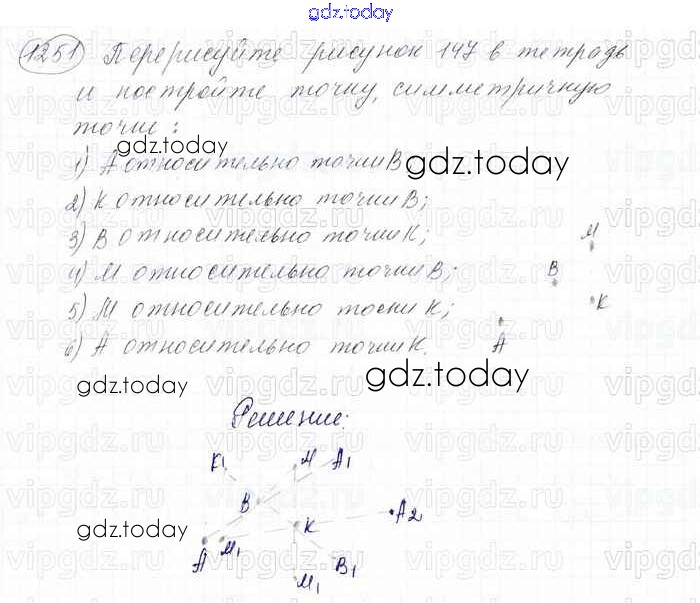 gdz.today
1251 Перерисуйте рисунок 147 в тетрадь
и постройте точку, симметричную
точке:
gdz.today
1) А относительно точки В;
gdz.today
2) К относительно точки В;
3) В относительно точки К;
4) М относительно точки В;
5) М относительно точки К;
6) А относительно точки К.
М
В
К
А
gdz.today
gdz.today
Решение:
К1 М А1
В
А2
gdz.today
К
А М1
В1
М1